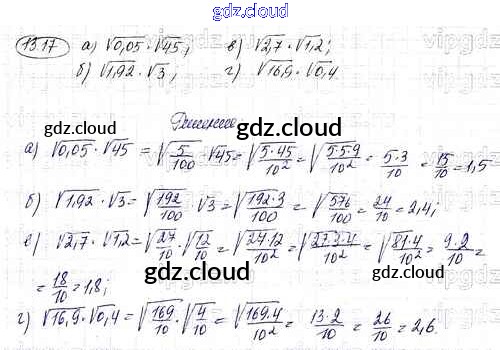 gdz.cloud
13.17 а) √0,05 · √45; в) √2,7 · √1,2;
б) √1,92 · √3; г) √16,9 · √0,4
Решение:
gdz.cloud
gdz.cloud
а) √0,05 · √45 = √(5/100) · √45 = √(5·45/10²) = √(5·5·9/10²) = 5·3/10 = 15/10 = 1,5
б) √1,92 · √3 = √(192/100) √3 = √(192·3/100) = √(576/100) = 24/10 = 2,4;
в) √2,7 · √1,2 = √(27/10) · √(12/10) = √(27·12/10²) = √(27·3·4/10²) = √(81·4/10²) = 9·2/10 =
= 18/10 = 1,8;
gdz.cloud
gdz.cloud
г) √16,9 · √0,4 = √(169/10) · √(4/10) = √(169·4/10²) = 13·2/10 = 26/10 = 2,6.